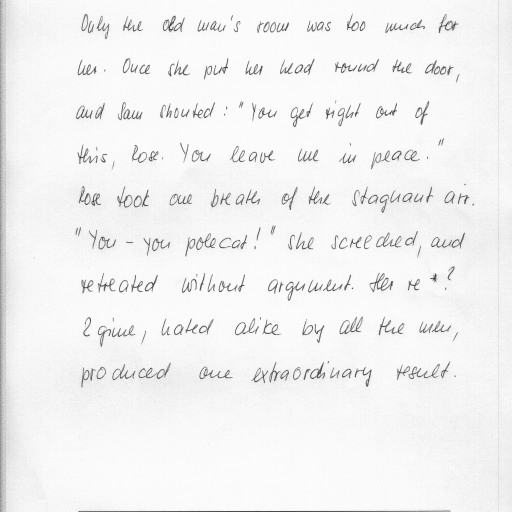 Only the old man's room was too much for
her. Once she put her head round the door,
and Sam shouted: "You get right out of
this, Rose. You leave me in peace."
Rose took one breath of the stagnant air.
"You - you polecat!" she screeched, and
retreated without argument. Her re *?
? gime, hated alike by all the men,
produced one extraordinary result.